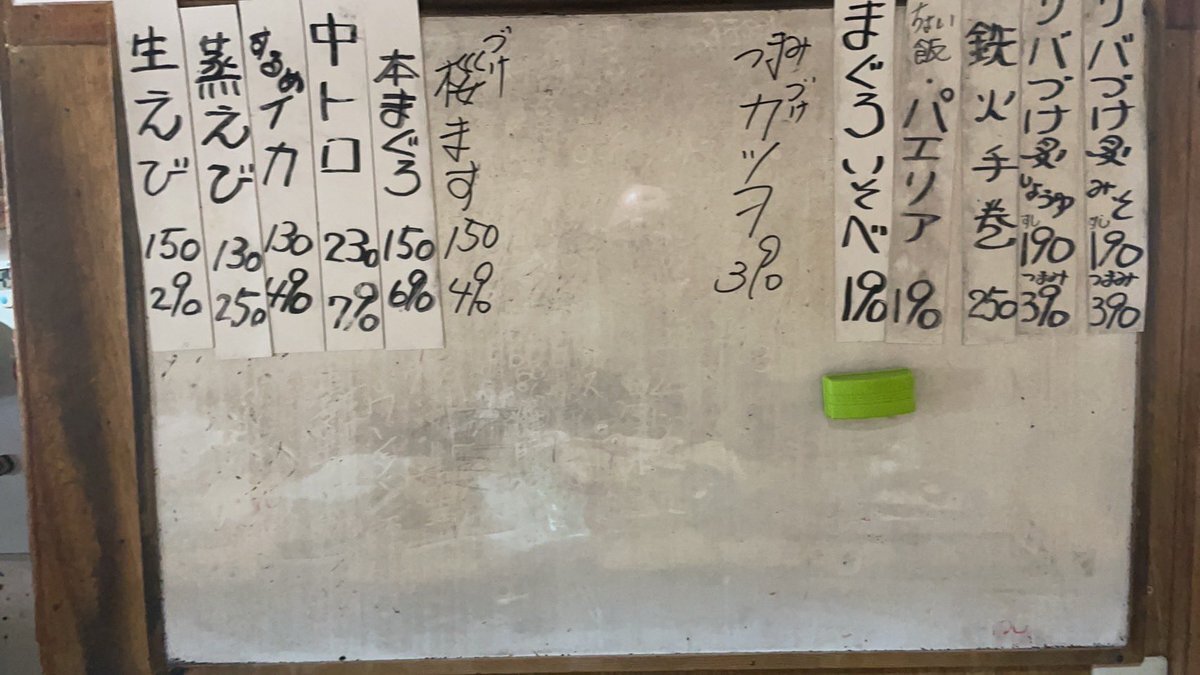 サバづけ炙みそ
すし
190
つまみ
390
サバづけ炙しょうゆ
すし
190
つまみ
390
鉄火手巻
250
ちょい飯・パエリア
190
まぐろいそべ
190
つまみ
づけ
カツヲ
390
づけ
桜ます
150
490
本まぐろ
150
690
中トロ
230
790
するめイカ
130
490
蒸えび
130
250
生えび
150
290